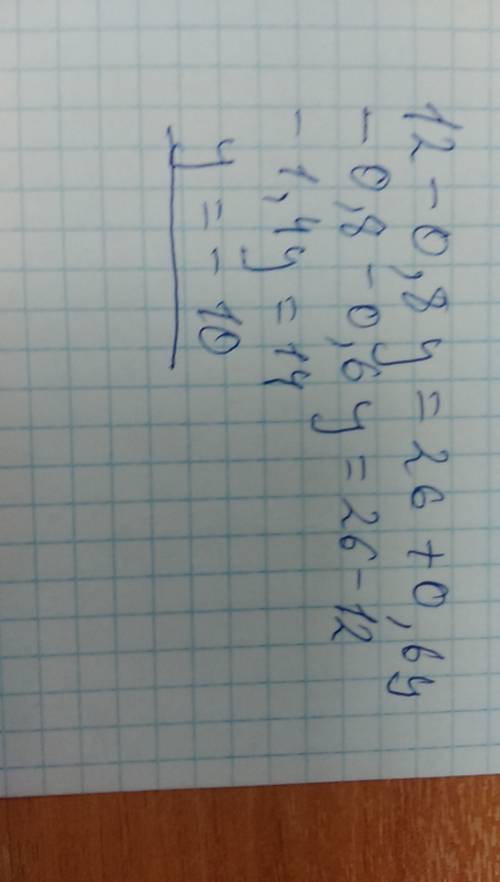 12 - 0,8y = 26 + 0,6y
- 0,8 - 0,6y = 26 - 12
- 1,4y = 14
y = - 10